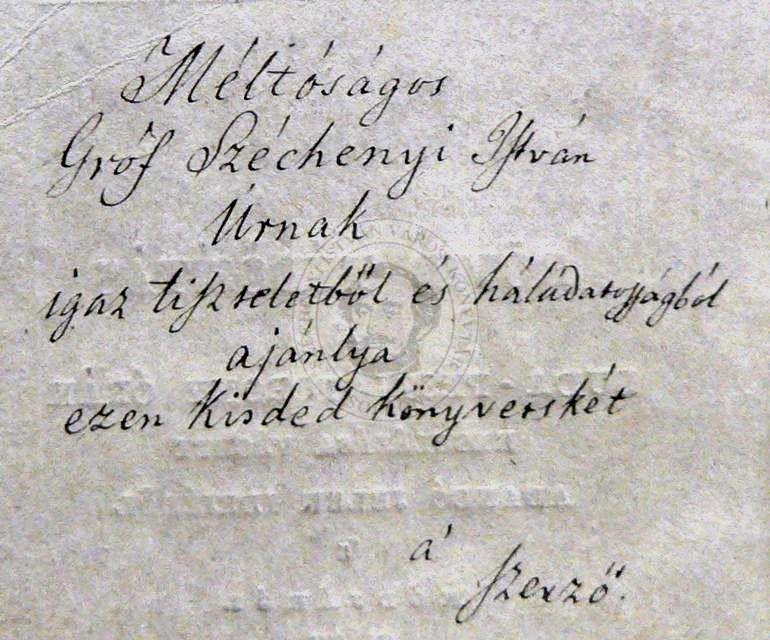 Méltóságos
Gróf Széchenyi István
Úrnak
igaz tiszteletből és háládatosságból
ajánlya
ezen kisded könyverskét
á
szerző.